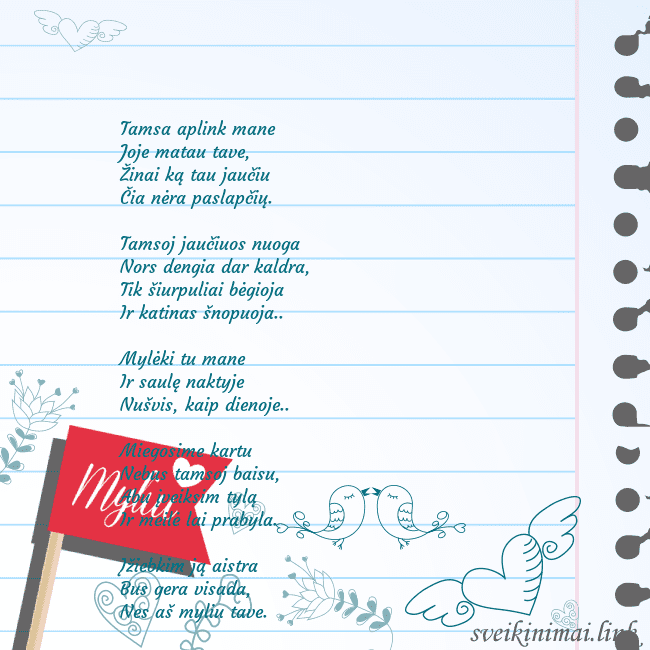 Tamsa aplink mane
Joje matau tave,
Žinai ką tau jaučiu
Čia nėra paslapčių.

Tamsoj jaučiuos nuoga
Nors dengia dar kaldra,
Tik šiurpuliai bėgioja
Ir katinas šnopuoja..

Mylėki tu mane
Ir saulę naktyje
Nušvis, kaip dienoje..

Miegosime kartu
Nebus tamsoj baisu,
Abu įveiksim tyla
Ir meilė lai prabyla.

Įžiebkim ją aistra
Bus gera visada,
Nes aš myliu tave.
Myliu
sveikinimai.link